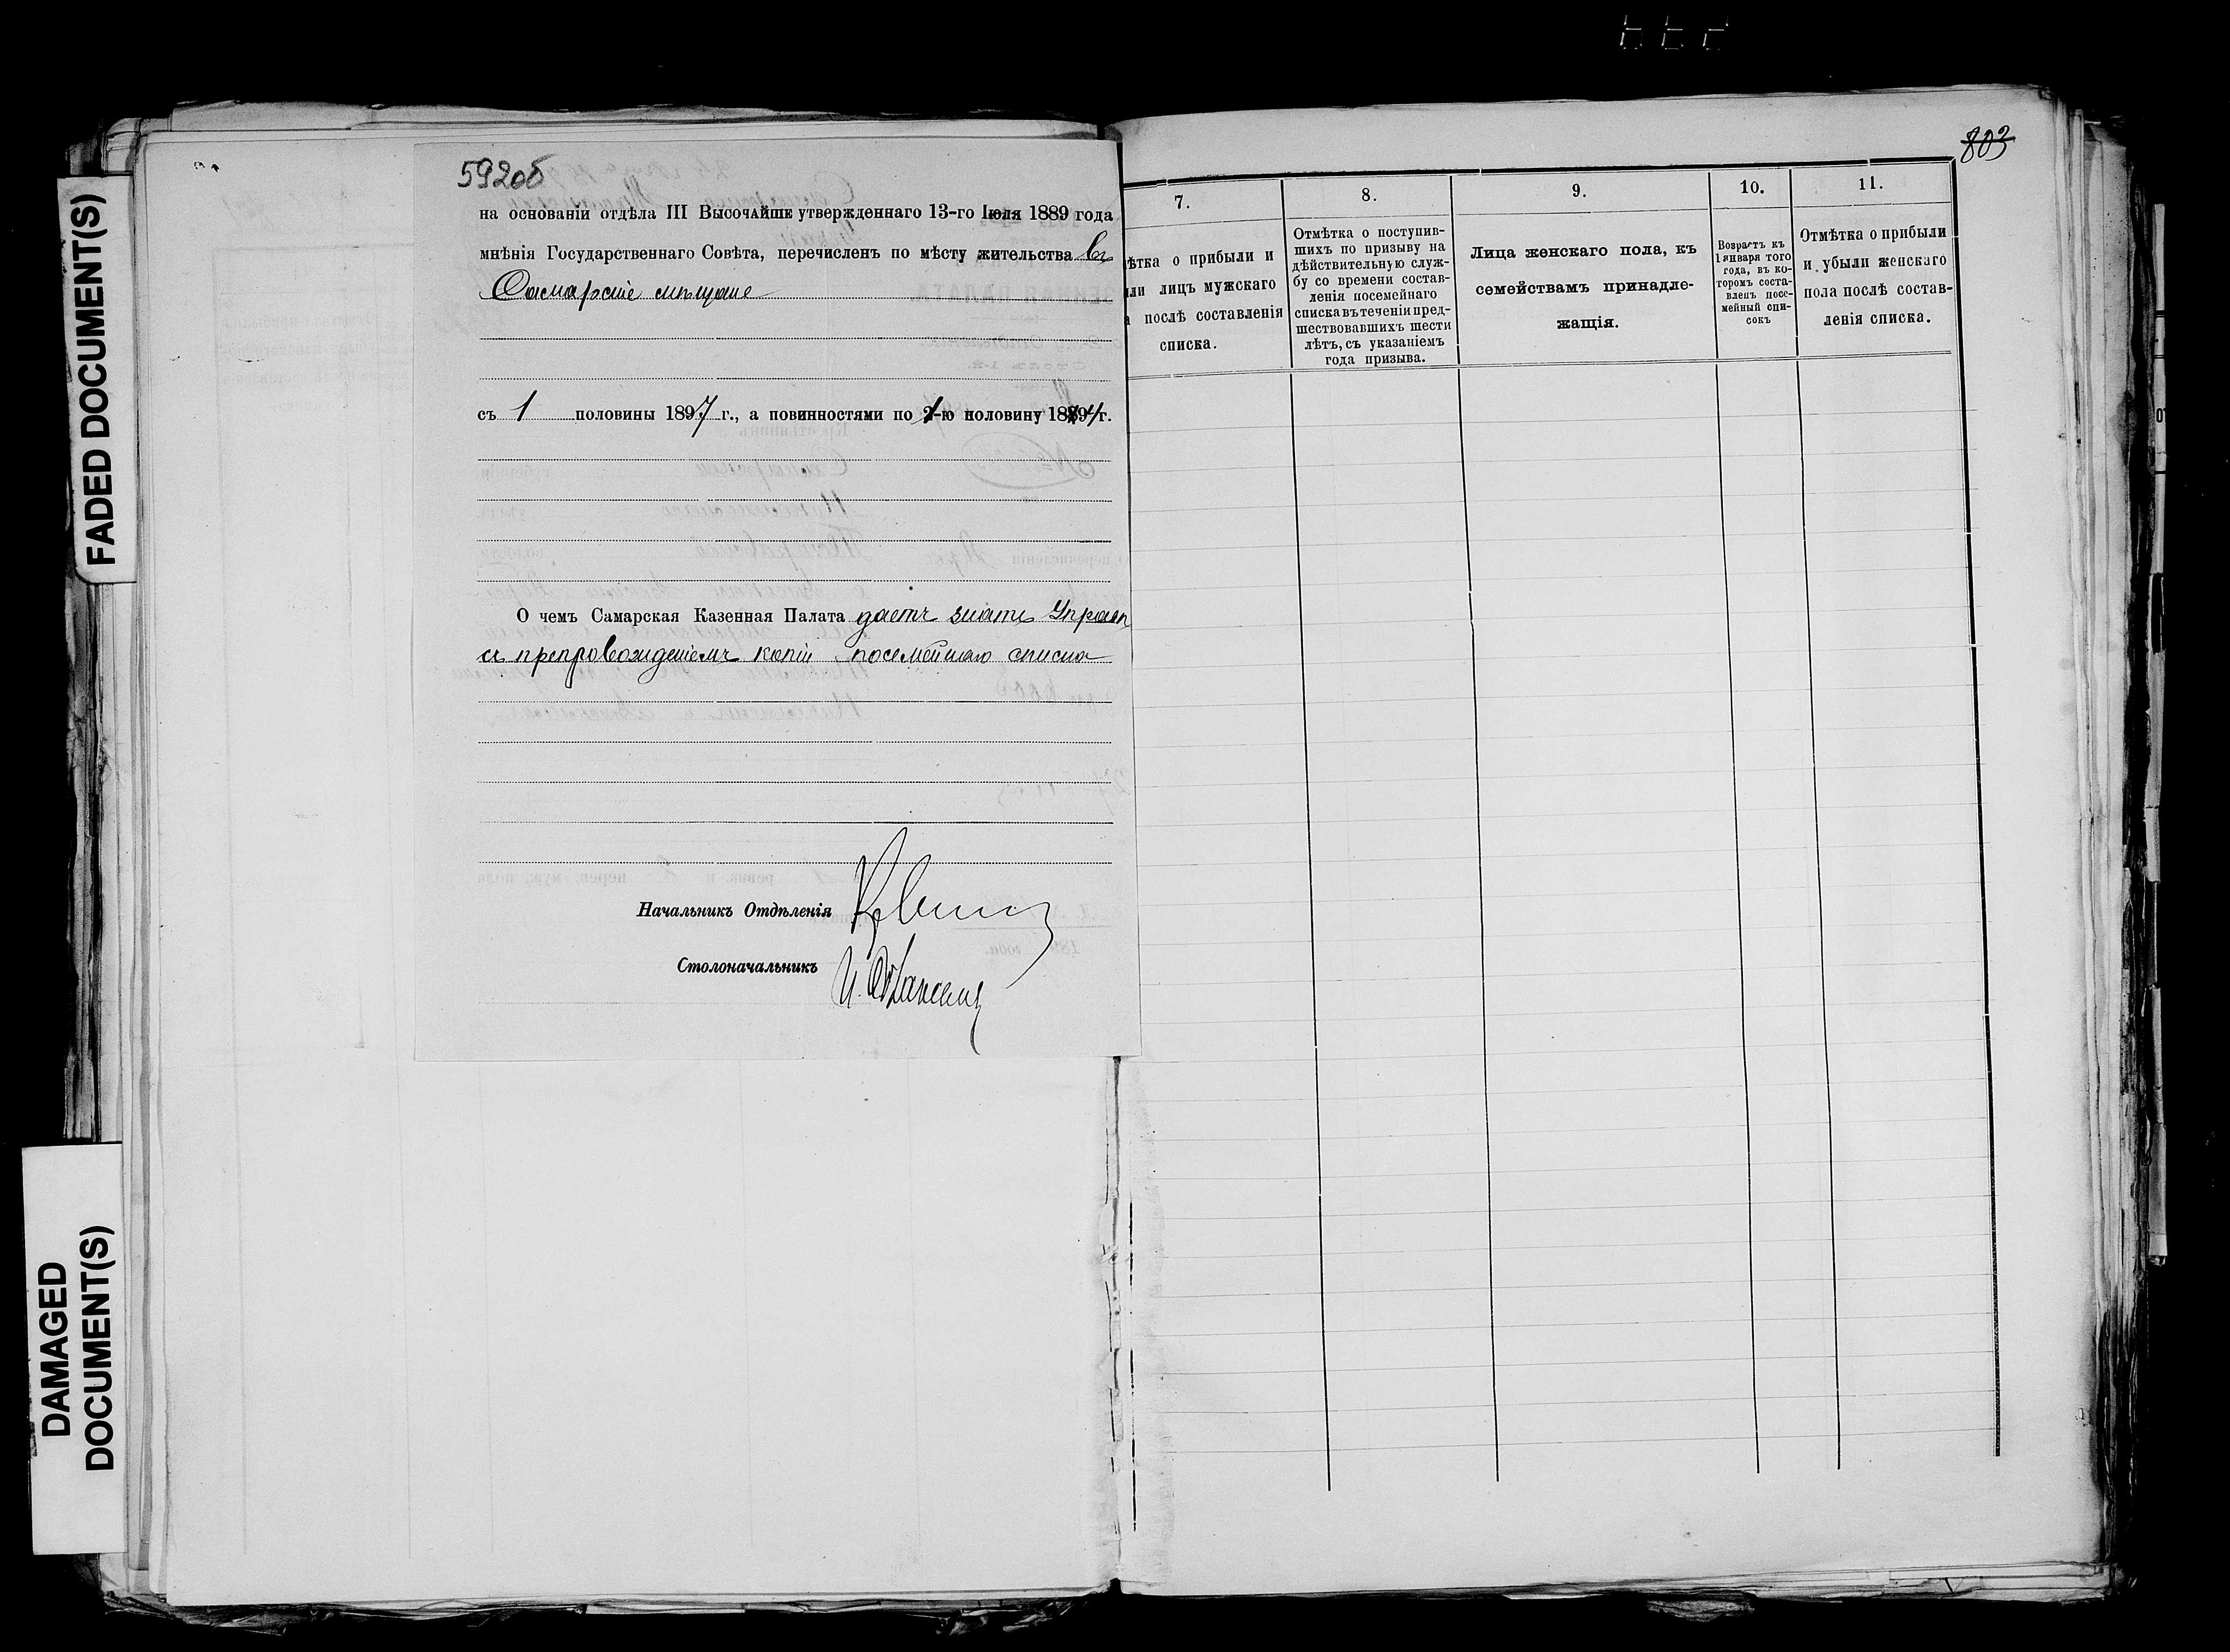 FADED DOCUMENT(S)
DAMAGED
DOCUMENT(S)
592об
на основаніи отдѣла III Высочайше утвержденнаго 13-го Іюля 1889 года
мнѣнія Государственнаго Совѣта, перечисленъ по мѣсту жительства въ
Самарскіе мѣщане
съ 1 половины 1897 г., а повинностями по 1-ю половину 1897 г.
О чемъ Самарская Казенная Палата даетъ знать Управѣ
съ препровожденіемъ копіи посемейнаго списка
Начальникъ Отдѣленія
Столоначальникъ
803
7.
ѣтка о прибыли и
ли лицъ мужскаго
послѣ составленія
списка.
8.
Отмѣтка о поступив-
шихъ по призыву на
дѣйствительную служ-
бу со времени состав-
ленія посемейнаго
списка въ теченіи пред-
шествовавшихъ шести
лѣтъ, съ указаніемъ
года призыва.
9.
Лица женскаго пола, къ
семействамъ принадле-
жащія.
10.
Возрастъ къ
1 января того
года, въ ко-
торомъ соста-
вленъ посе-
мейный спи-
сокъ
11.
Отмѣтка о прибыли
и убыли женскаго
пола послѣ состав-
ленія списка.